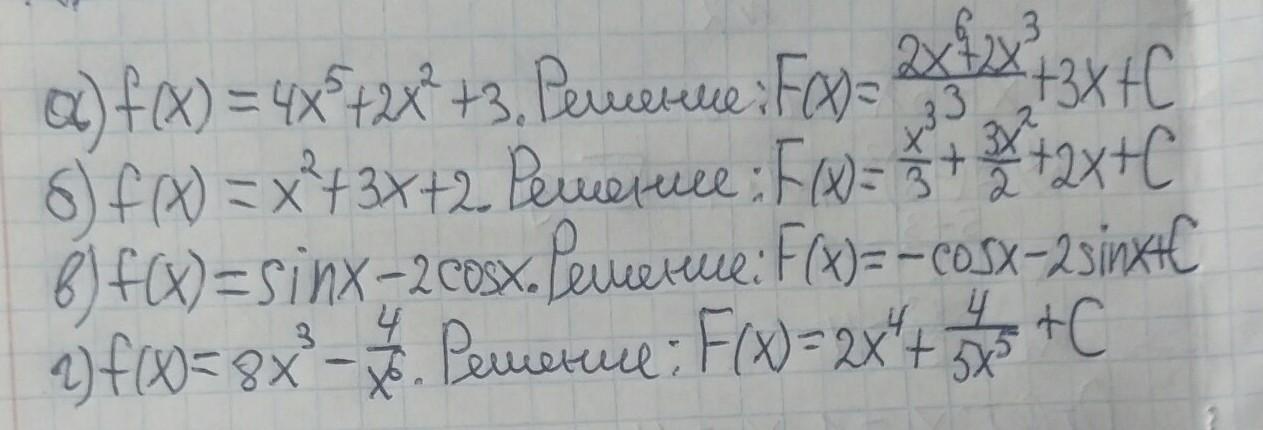 а) f(x) = 4x⁵+2x²+3. Решение: F(x) = (2x⁶+2x³)/3 +3x+C
б) f(x) = x²+3x+2. Решение: F(x) = x³/3 + 3x²/2 +2x+C
в) f(x) = sinx-2cosx. Решение: F(x) = -cosx-2sinx+C
г) f(x) = 8x³ - 4/x⁶. Решение: F(x) = 2x⁴ + 4/5x⁵ +C